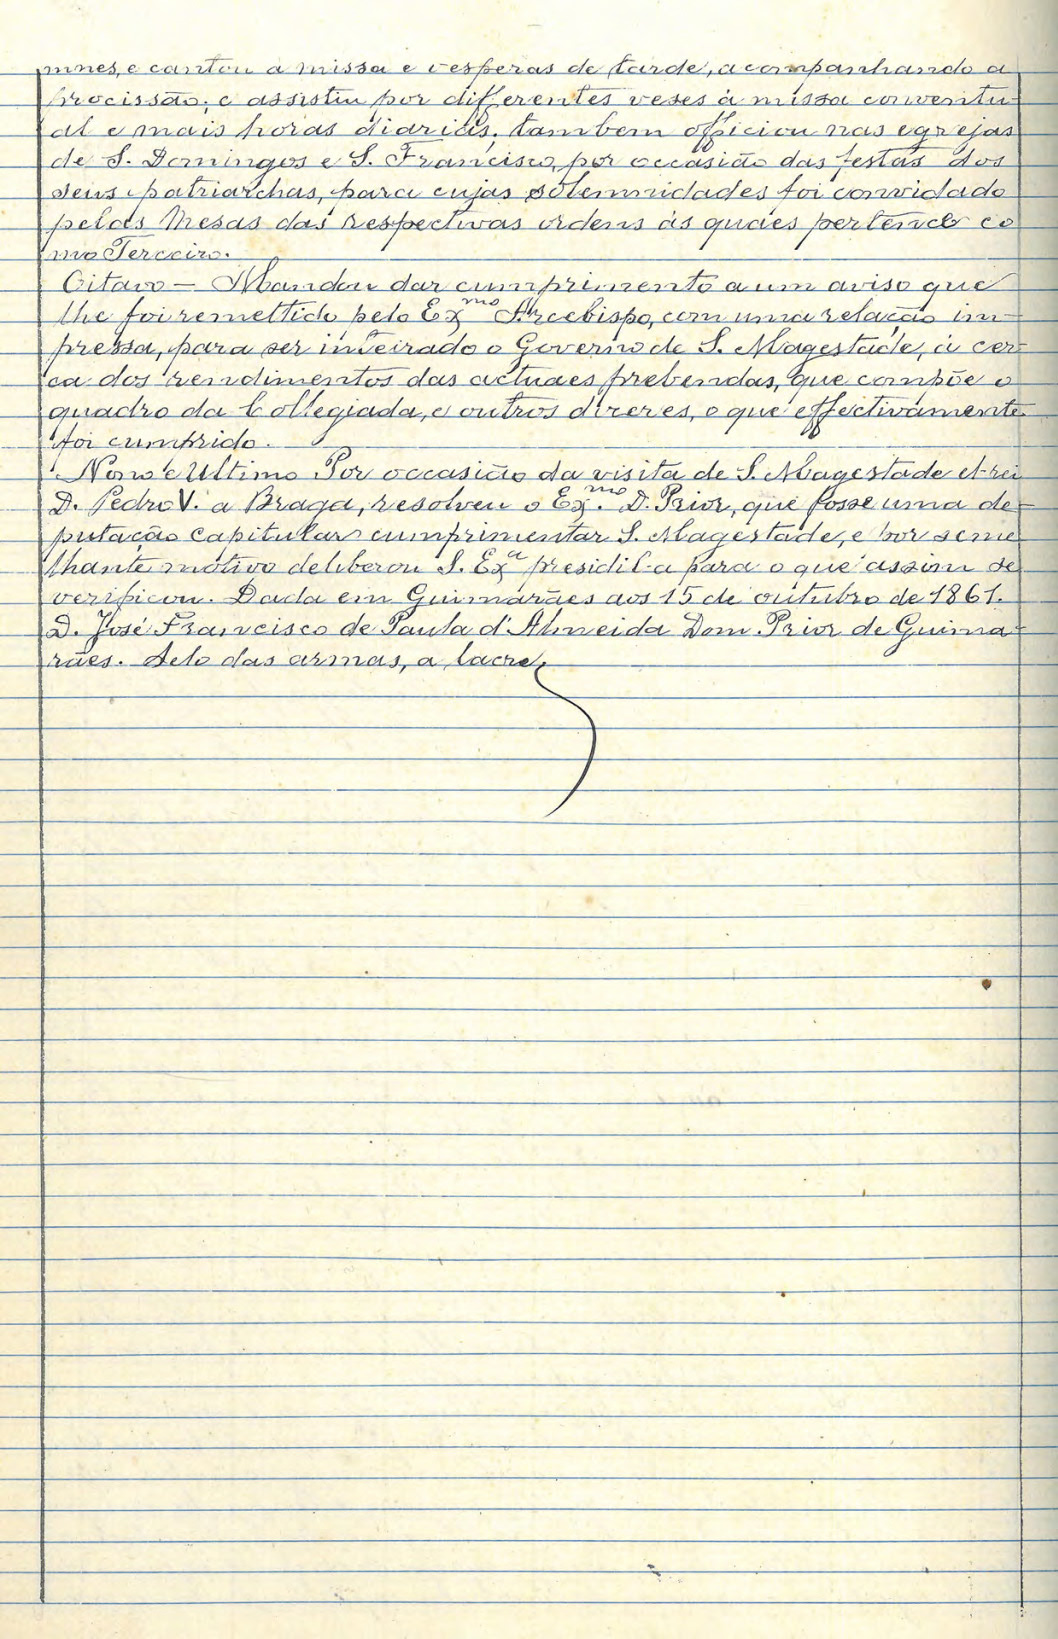 mnes, e cantou a missa e vesperas de tarde, acompanhando a
procissão; e assistiu por differentes veses á missa conventu-
al e mais horas diarias; tambem officiou nas egrejas
de S. Domingos e S. Francisco, por occasião das festas dos
seus patriarchas, para cujas solemnidades foi convidado
pelas Mesas das respectivas ordens ás quaes pertence co
mo Terceiro.
Oitavo — Mandou dar cumprimento a um aviso que
lhe foi remettido pelo Exmo Arcebispo, com uma relação im-
pressa, para ser inteirado o Governo de S. Magestade, á cer-
ca dos rendimentos das actuaes prebendas, que compõe o
quadro da Collegiada, e outros direres, o que effectivamente
foi cumprido.
Nono e Ultimo Por occasião da visita de S. Magestade el-rei
D. Pedro V. a Braga, resolveu o Exmo. D. Prior, que fosse uma de-
putação capitular cumprimentar S. Magestade, e por seme
lhante motivo deliberou S. Exa presidil-a para o que assim se
verificou. Dada em Guimarães aos 15 de outubro de 1861.
D. José Francisco de Paula d'Almeida Dom Prior de Guima-
rães. Selo das armas, a lacre.